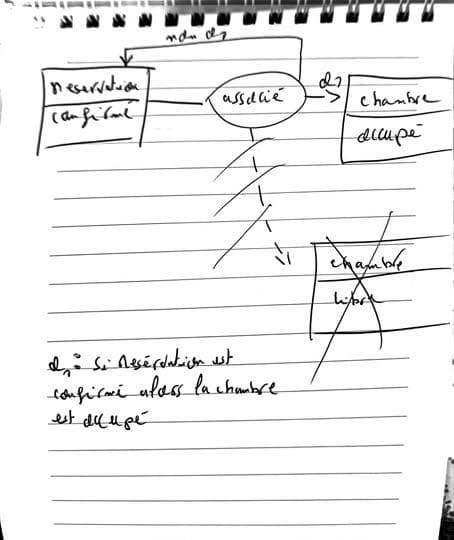 non d1
Reservation
confirmé
associé
d1
chambre
occupé
chambre
libre
d1 : Si Resérvation est
confirmé alors la chambre
est occupé